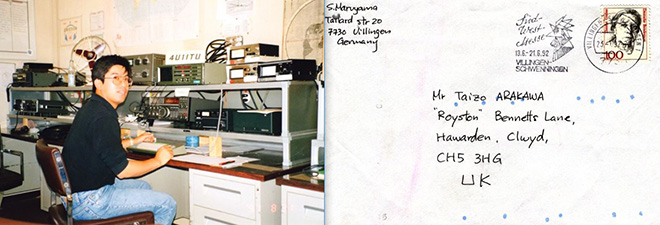 4U1ITU
S. Maruyama
Tallard str. 20
7730 Villingen
Germany
Süd-
West-
Messe
13.6.-21.6.92
VILLINGEN-
SCHWENNINGEN
100
Mr Taizo ARAKAWA
"Royston" Bennetts Lane,
Hawarden, Clwyd,
CH5 3HG
UK